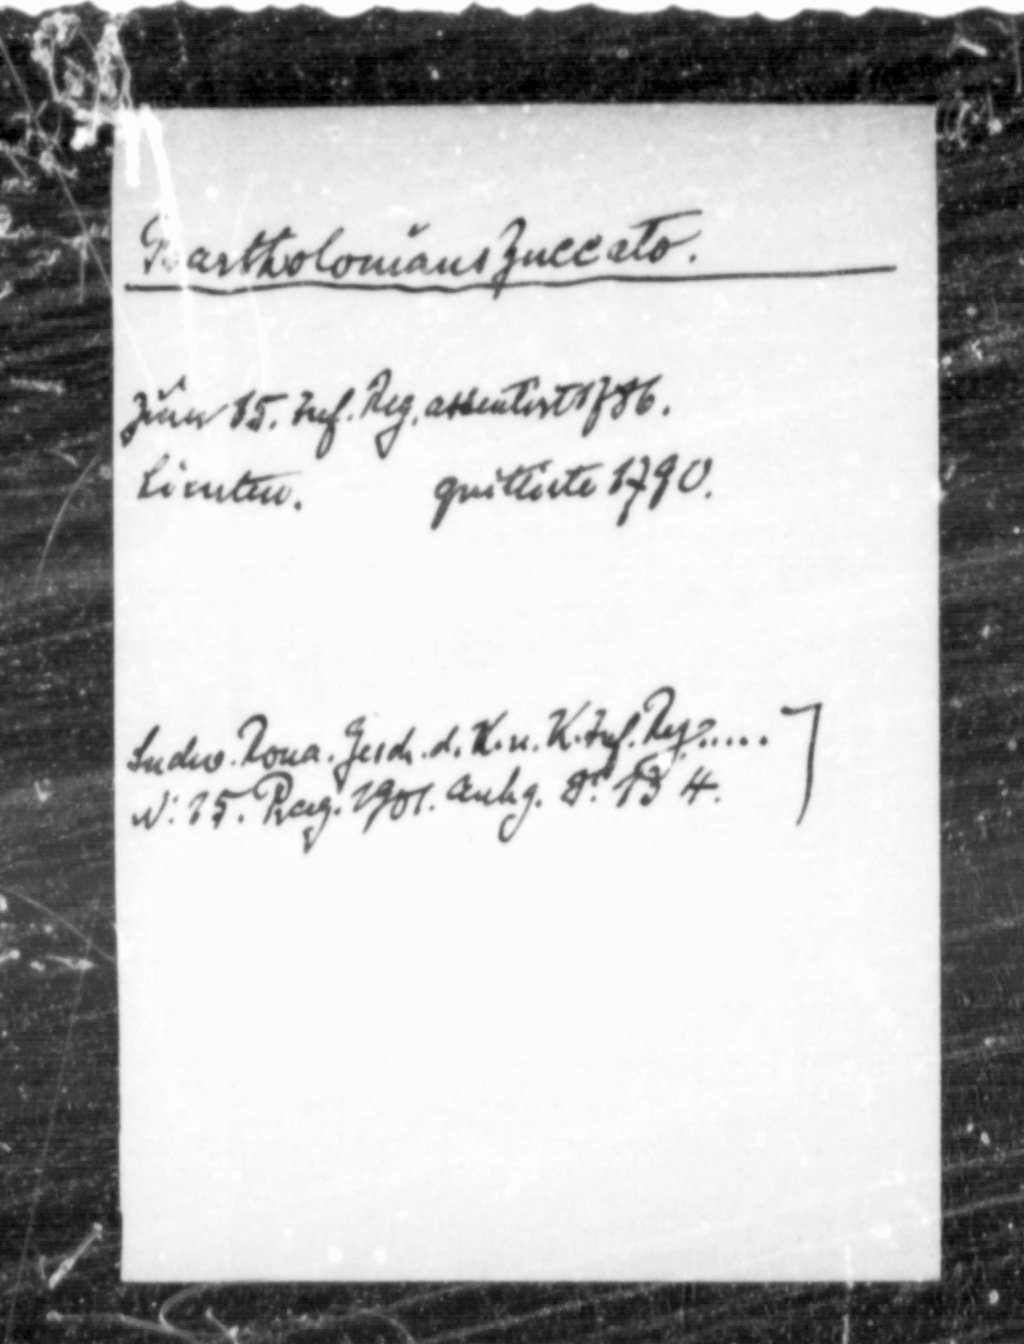 Bartholomäus Zuccato.
Zum 15. Inf. Reg. assentirt 1786.
Lieuten. quittirte 1790.
Ludw. Rona. Gesch. d. K. u. K. Inf. Reg.....
N: 15. Prag. 1901. Anhg. 4.